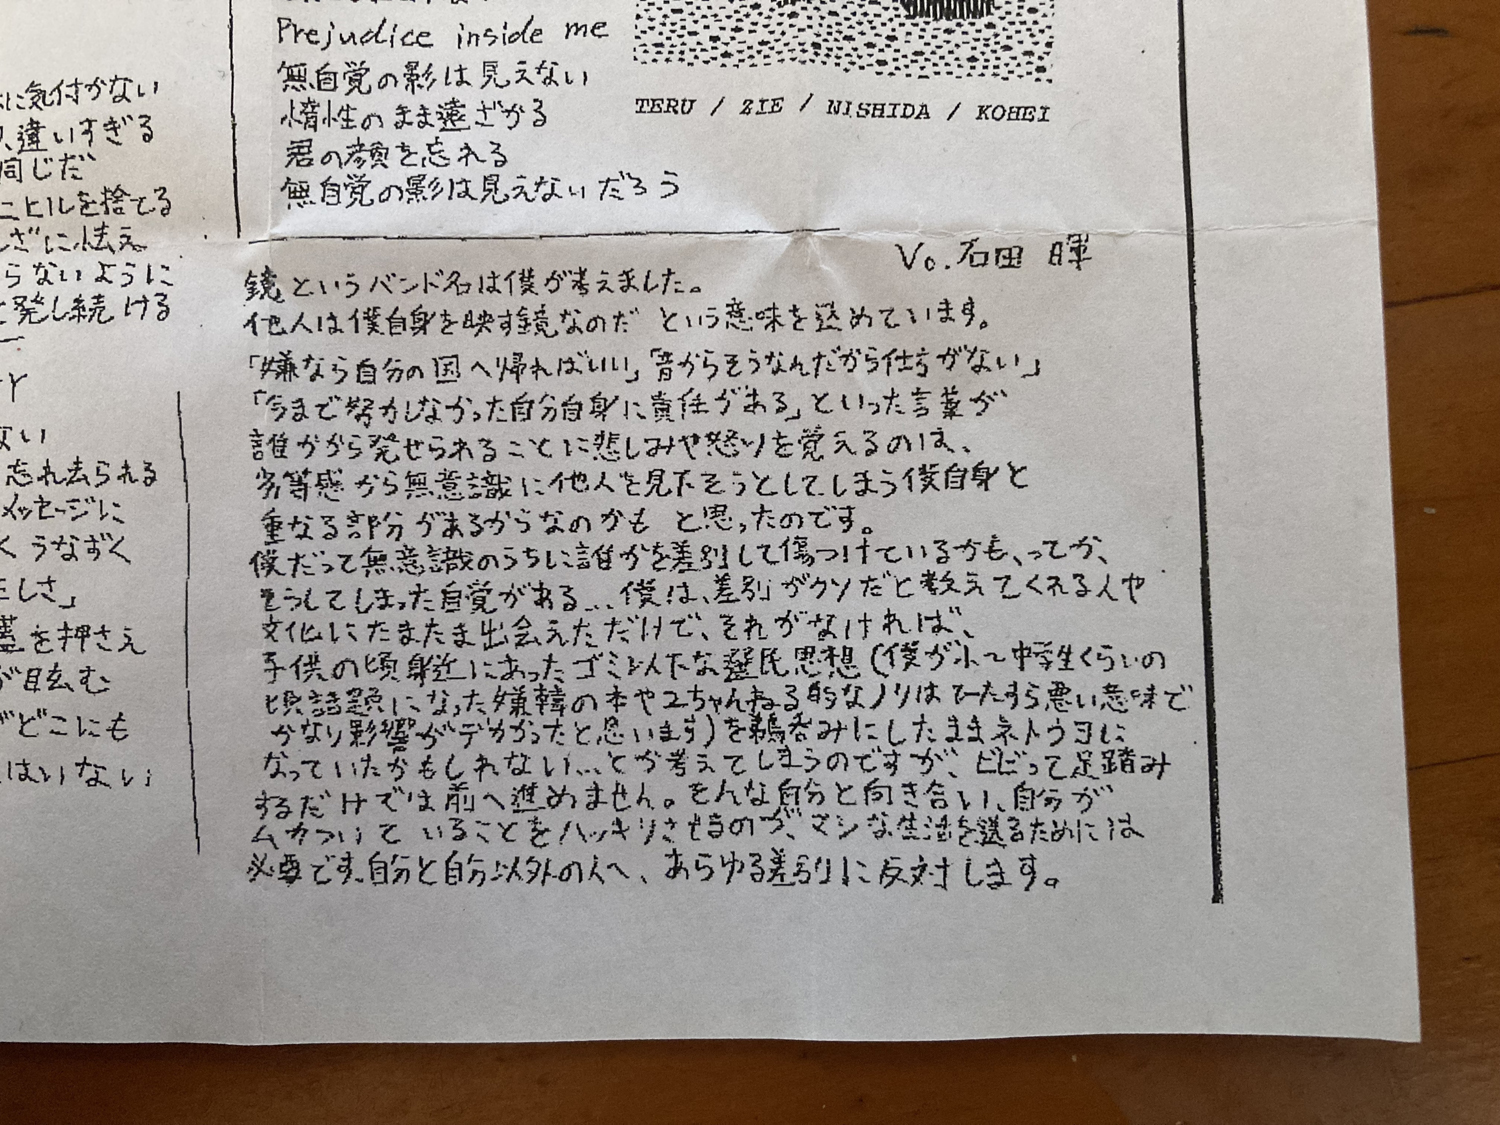 に気付かない
違いすぎる
同じだ
ニヒルを捨てる
ざに怯え
らないように
と発し続ける
ない
忘れ去られる
メッセージに
くうなずく
正しさ」
蓋を押さえ
が眩む
どこにも
はいない
Prejudice inside me
無自覚の影は見えない
惰性のまま遠ざかる
君の顔を忘れる
無自覚の影は見えないだろう
TERU / ZIE / NISHIDA / KOHEI
Vo. 石田 暉
鏡というバンド名は僕が考えました。
他人は僕自身を映す鏡なのだ という意味を込めています。
「嫌なら自分の国へ帰ればいい」「昔からそうなんだから仕方がない」
「今まで努力しなかった自分自身に責任がある」といった言葉が
誰かから発せられることに悲しみや怒りを覚えるのは、
劣等感から無意識に他人を見下そうとしてしまう僕自身と
重なる部分があるからなのかも と思ったのです。
僕だって無意識のうちに誰かを差別して傷つけているかも、ってか、
そうしてしまった自覚がある...僕は、差別がクソだと教えてくれる人や
文化にたまたま出会えただけで、それがなければ、
子供の頃身近にあったゴミみたな選民思想(僕が小～中学生くらいの
頃話題になった嫌韓の本や2ちゃんねる的なノリはひたすら悪い意味で
かなり影響がデカかったと思います)を鵜呑みにしたままネトウヨに
なっていたかもしれない...とか考えてしまうのですが、ビビって足踏み
するだけでは前へ進めません。そんな自分と向き合い、自分が
ムカついていることをハッキリさせるのが、マシな生活を送るためには
必要です。自分と自分以外の人へ、あらゆる差別に反対します。